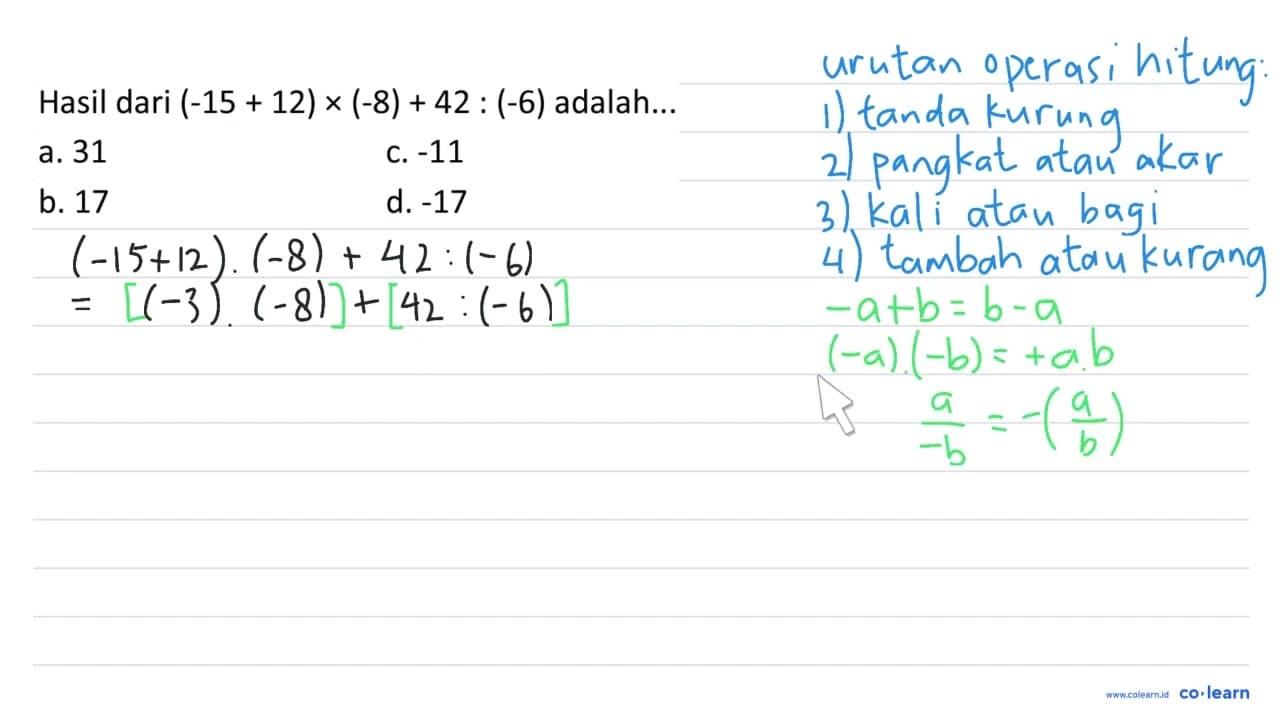 Hasil dari (-15 + 12) × (-8) + 42 : (-6) adalah...
a. 31 c. -11
b. 17 d. -17
(-15+12).(-8) + 42:(-6)
= [(-3).(-8)]+[42:(-6)]
urutan operasi hitung:
1) tanda kurung
2) pangkat atau akar
3) kali atau bagi
4) tambah atau kurang
-a+b = b-a
(-a).(-b) = +a.b
a/-b = -(a/b)
www.colearn.id co·learn